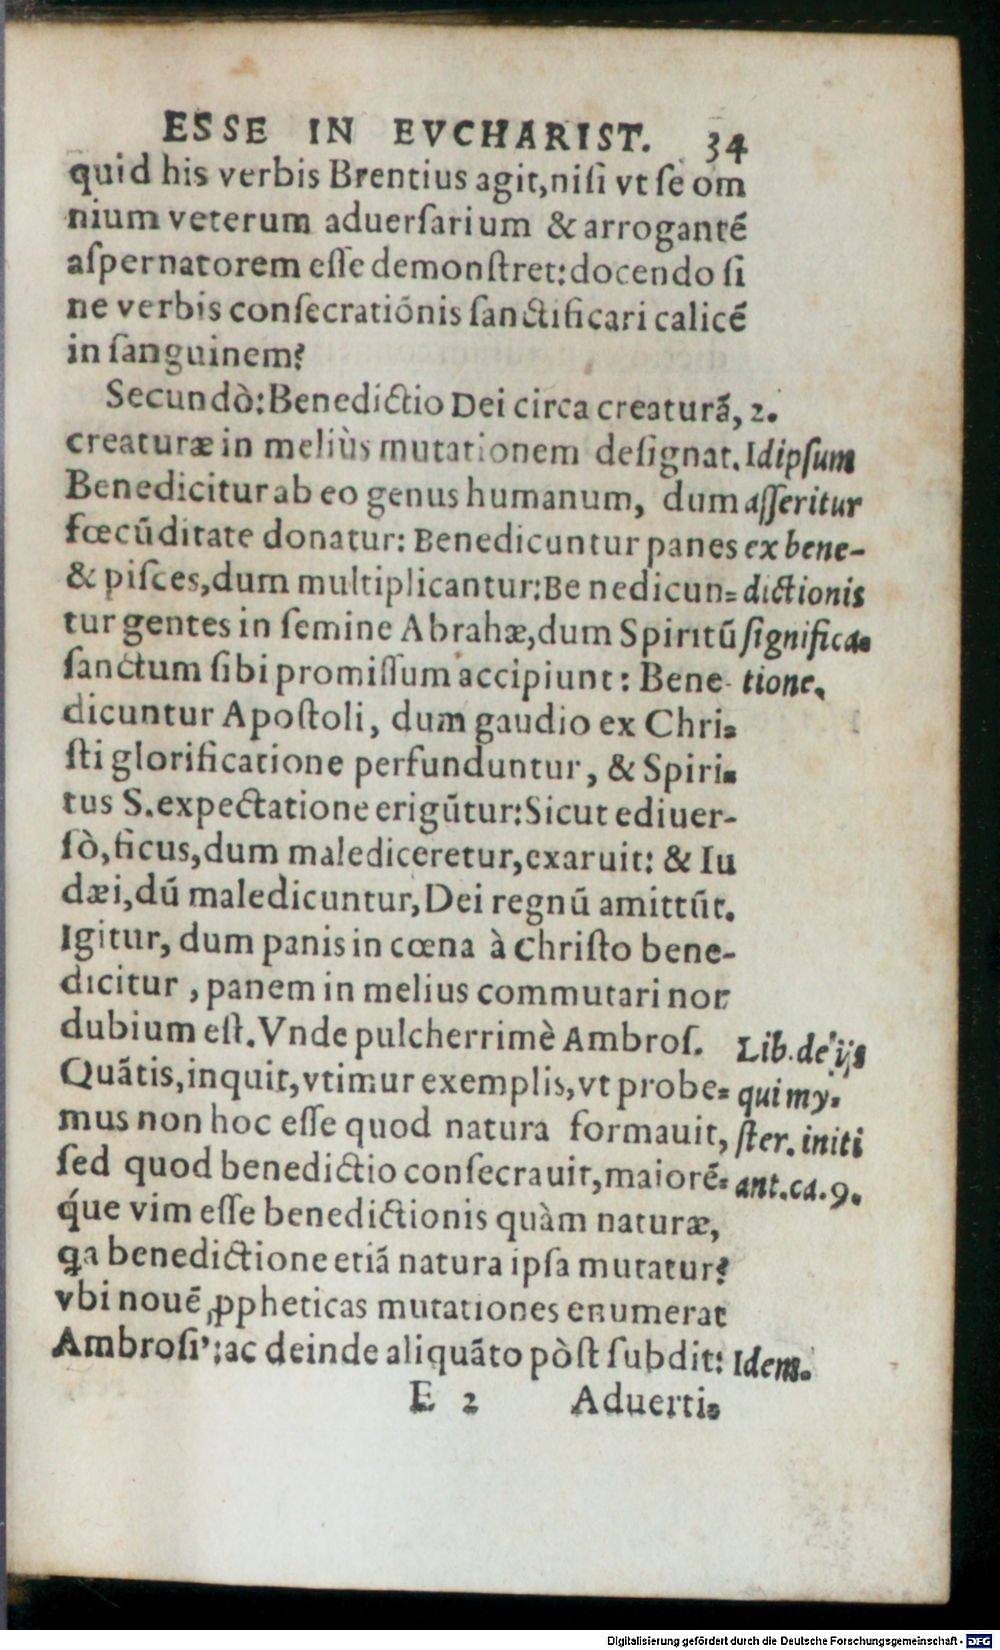 ESSE IN EVCHARIST. 34
quid his verbis Brentius agit,niſi vt ſe om
nium veterum aduerſarium & arrogantẽ
aſpernatorem eſſe demonſtret:docendo ſi
ne verbis conſecratiõnis ſanctificari calicẽ
in ſanguinem?
Secundò:Benedictio Dei circa creaturã, 2.
creaturæ in meliùs mutationem deſignat. Idipſum
Benedicitur ab eo genus humanum, dum aſſeritur
fœcũditate donatur: Benedicuntur panes ex bene-
& piſces,dum multiplicantur:Be nedicun= dictionis
tur gentes in ſemine Abrahæ,dum Spiritũ ſignifica-
ſanctum ſibi promiſſum accipiunt: Bene- tione.
dicuntur Apoſtoli, dum gaudio ex Chri-
ſti glorificatione perfunduntur, & Spiri-
tus S.expectatione erigũtur:Sicut ediuer-
ſò,ficus,dum malediceretur,exaruit: & Iu
dæi,dũ maledicuntur,Dei regnũ amittũt.
Igitur, dum panis in cœna à Chriſto bene-
dicitur , panem in melius commutari non
dubium eſt. Vnde pulcherrimè Ambroſ. Lib.de ijs
Quãtis,inquit,vtimur exemplis,vt probe= qui my-
mus non hoc eſſe quod natura formauit, ſter. initi
ſed quod benedictio conſecrauit,maiorẽ= ant.ca.9.
q́ue vim eſſe benedictionis quàm naturæ,
ꝗa benedictione etiã natura ipſa mutatur?
vbi nouẽ ꝓpheticas mutationes enumerat
Ambroſi⁹;ac deinde aliquãto pòſt ſubdit: Idem.
E 2 Aduerti-
Digitalisierung gefördert durch die Deutsche Forschungsgemeinschaft - DFG